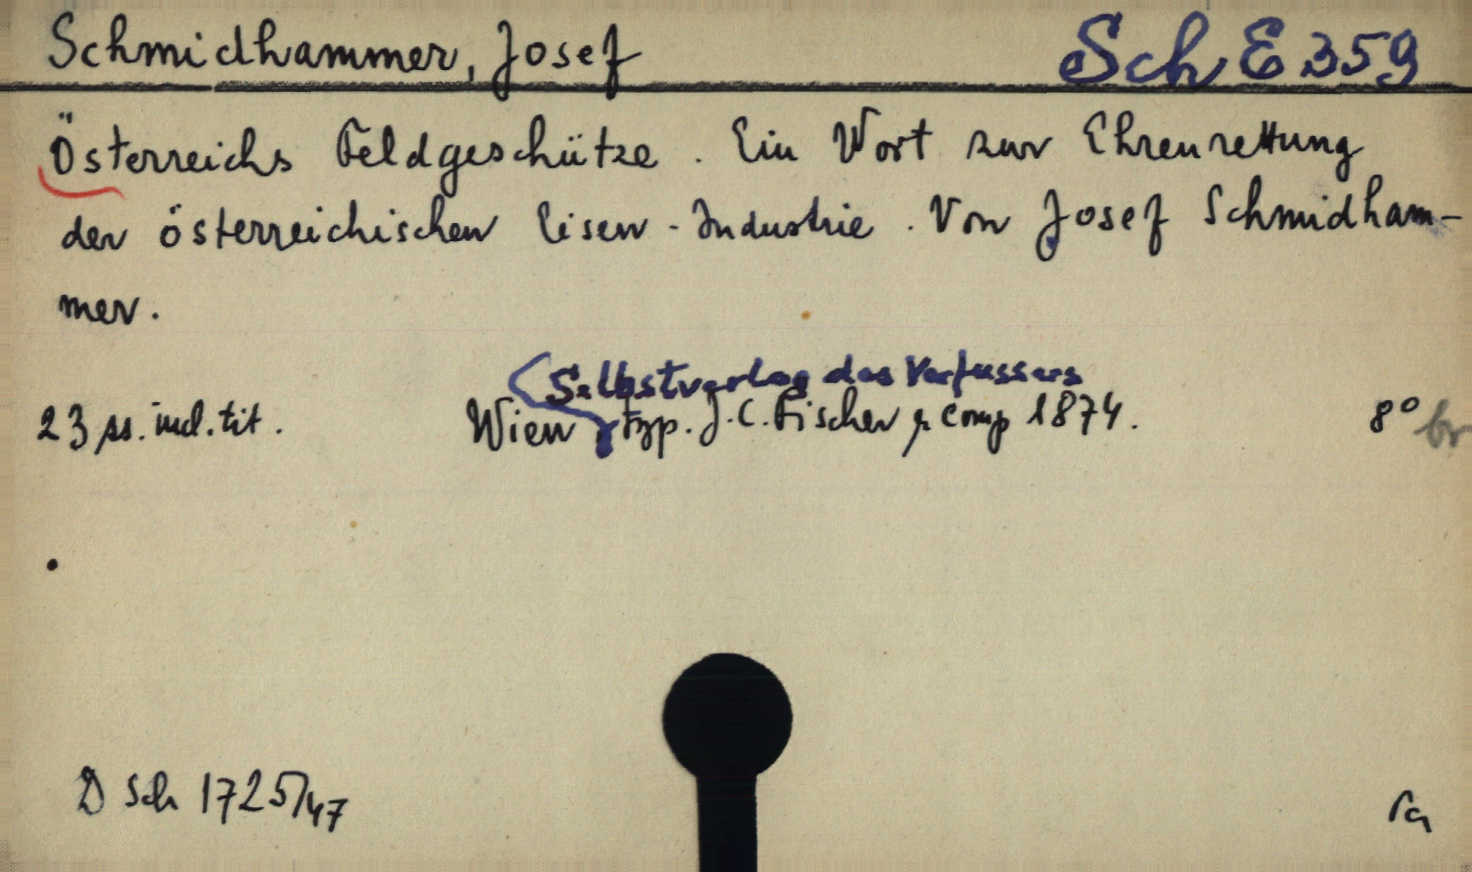 Schmidhammer, Josef Sch E 359
Österreichs Feldgeschütze. Ein Wort zur Ehrenrettung
der österreichischen Eisen-Industrie. Von Josef Schmidham-
mer.
Selbstverlag des Verfassers
23 ss. incl. tit. Wien, typ. J. C. Fischer & Comp 1874. 8° br
D Sch 1725/47